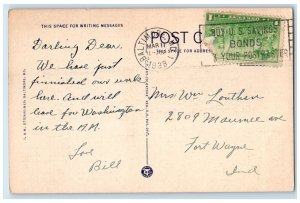 THIS SPACE FOR WRITING MESSAGES
POST C
THIS SPACE FOR ADDRESS
BALTIMORE
MAR 17
1938
BUY U.S. SAVINGS
BONDS
ASK YOUR POSTMASTER
Darling Dear,
We have just
finished our work
here. And will
leave for Washington
in the A.M.
Love
Bill
Mrs Wm Louthen
2809 Maumee ave
Fort Wayne
Ind